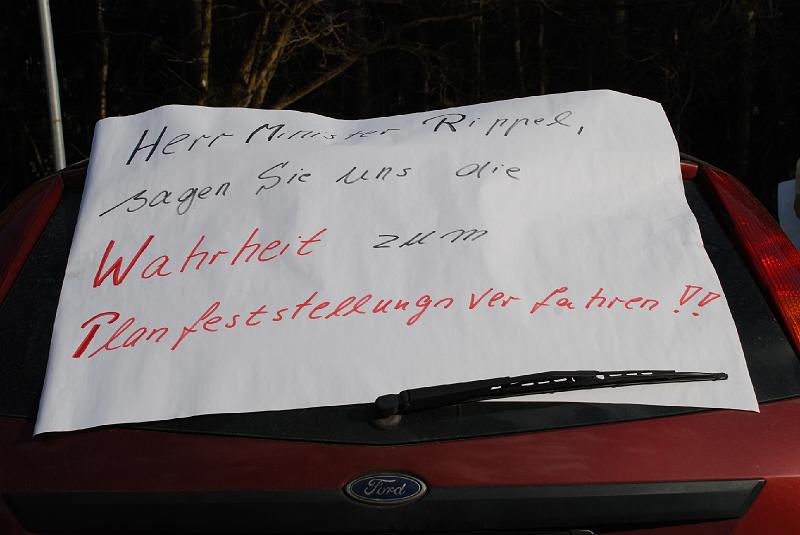 Herr Minister Rippel,
sagen Sie uns die
Wahrheit zum
Planfeststellungsverfahren!!
Ford